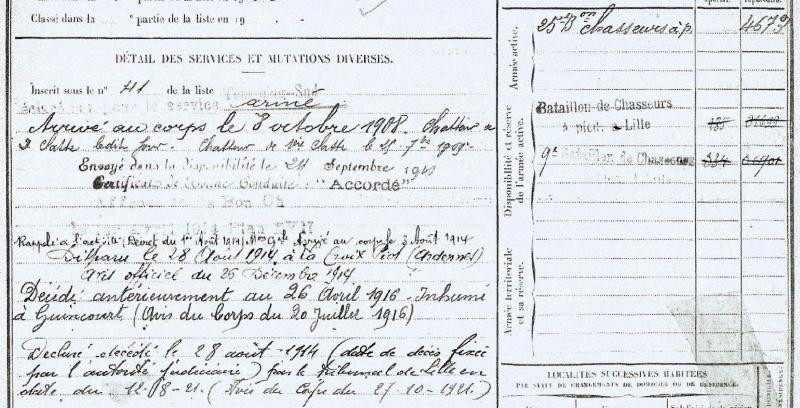 Classé dans la ° partie de la liste en 19
DÉTAIL DES SERVICES ET MUTATIONS DIVERSES.
Inscrit sous le n° 41 de la liste Tourcoing-Sud
pour le service armé
Arrivé au corps le 8 octobre 1908. Chasseur de
2e Classe ledit jour. Chasseur de 1ère Classe le 7bre 1909.
Envoyé dans la disponibilité le 24 Septembre 1910
Certificat de Bonne Conduite : "Accordé"
Rappelé à l'activité (Décret du 1er Août 1914) Mon Gle Arrivé au corps le 3 Août 1914
Disparu le 28 Août 1914 à la Croix Piot (Ardennes)
Avis officiel du 26 Décembre 1914
Décédé antérieurement au 26 Avril 1916 - Inhumé
à Guincourt (Avis du Corps du 20 Juillet 1916)
Déclaré décédé le 28 août 1914 (date de décès fixée
par l'autorité judiciaire) par le Tribunal de Lille en
date du 12-08-21. (Avis du Corps du 27-10-1921.)
Armée active.
25e Bon Chasseurs à p.
Disponibilité et réserve
de l'armée active.
Bataillon de Chasseurs
à pied, à Lille
9e Bataillon de Chasseurs
Armée territoriale
et sa réserve.
LOCALITÉS SUCCESSIVES HABITÉES
PAR SUITE DE CHANGEMENTS DE DOMICILE OU DE RÉSIDENCE.